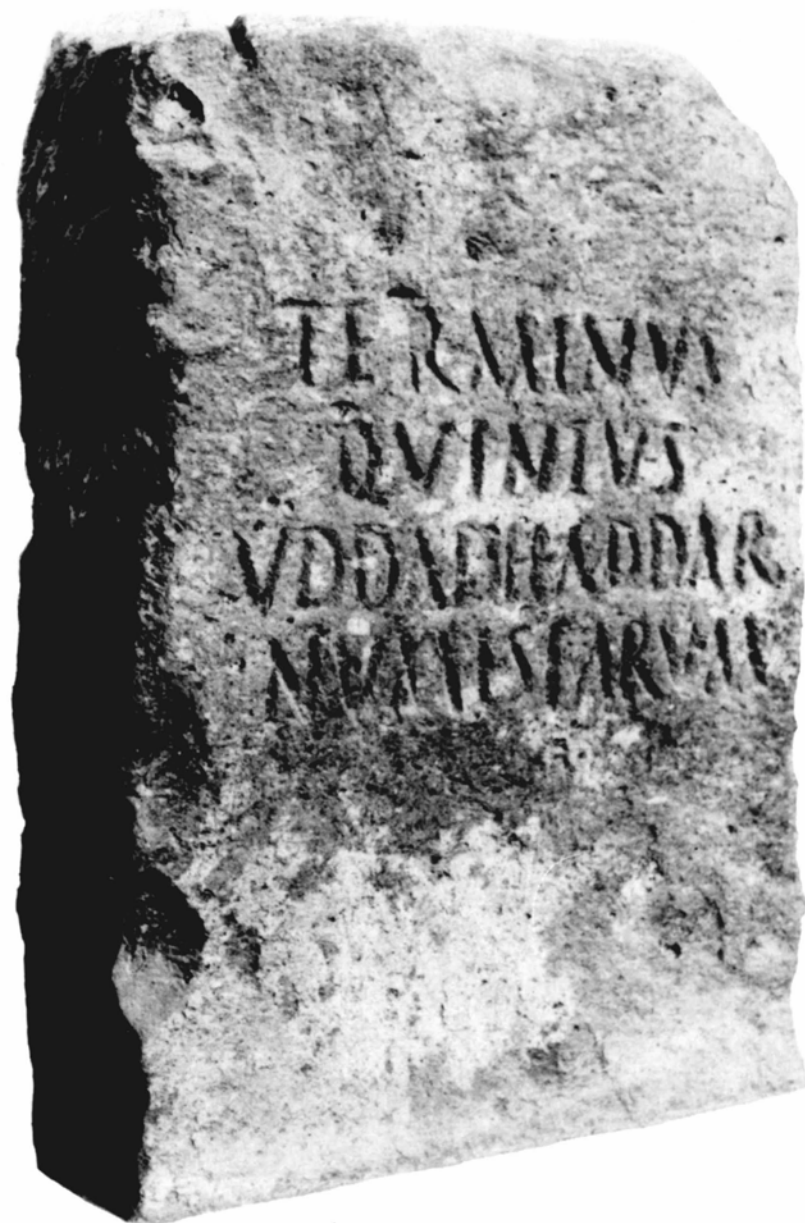 TERMINVS
QVINTVS
VDDADHADDAR
NVMISIARVM